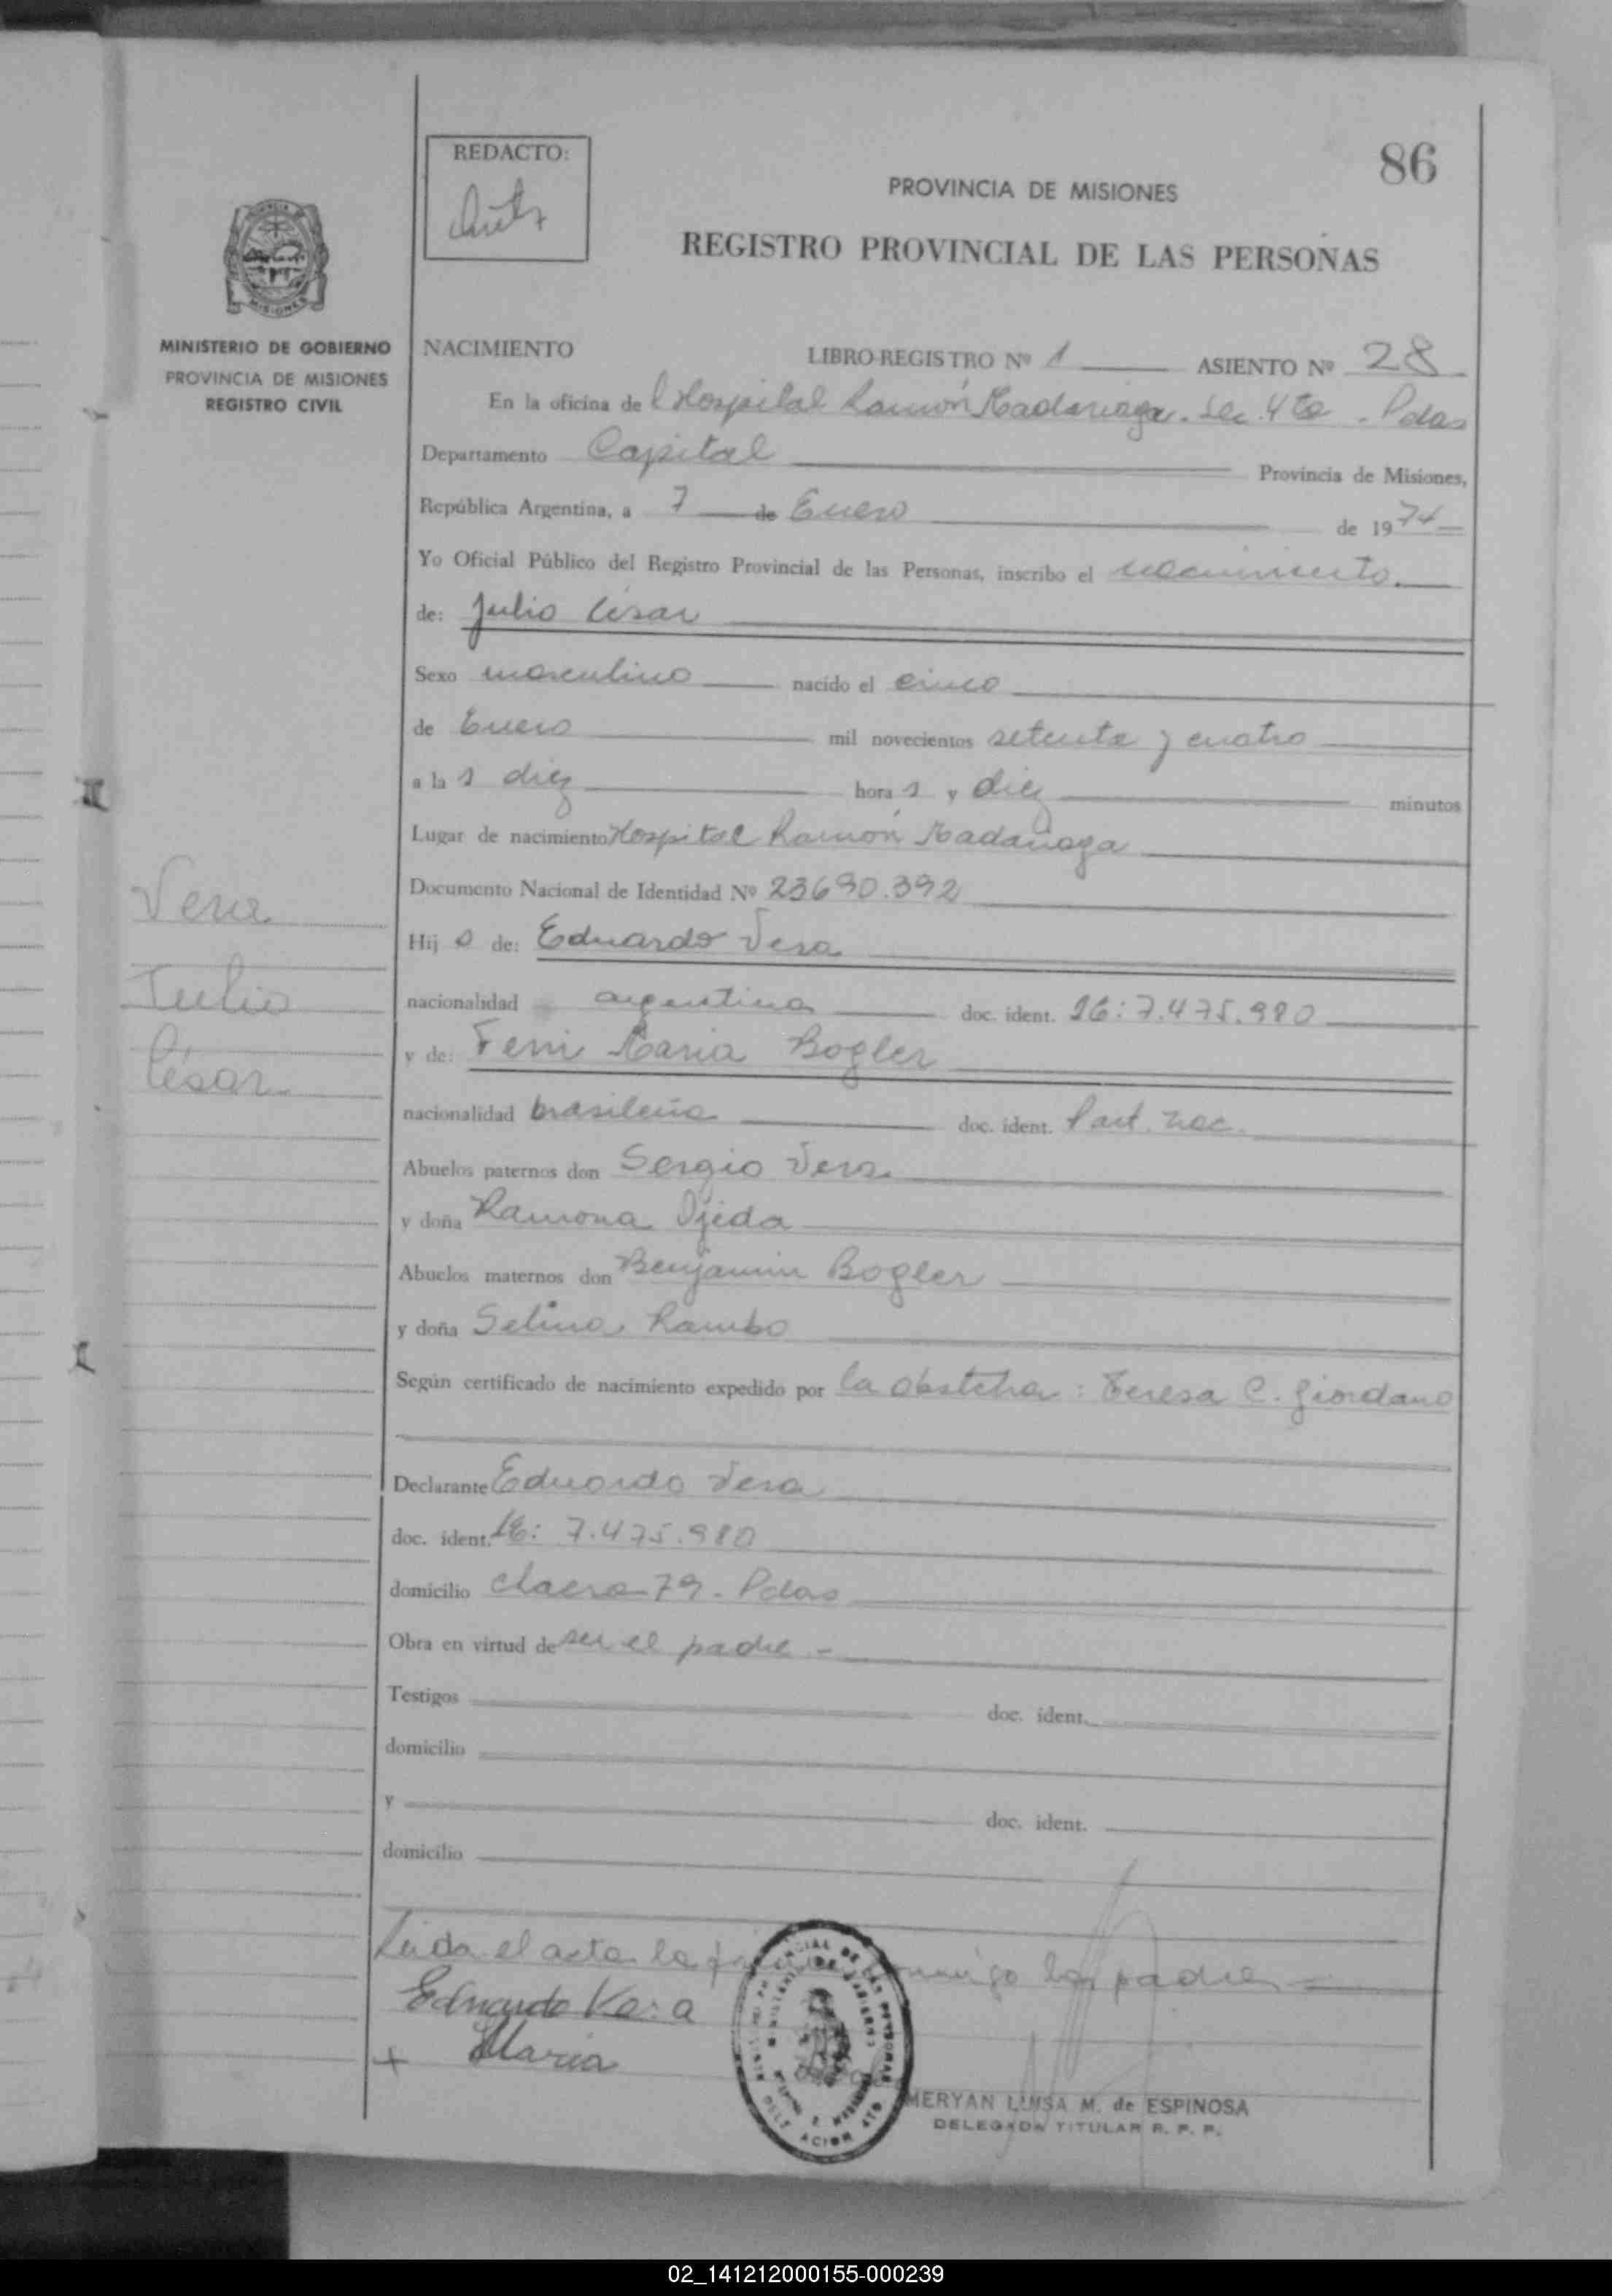 86
REDACTO:
PROVINCIA DE MISIONES
REGISTRO PROVINCIAL DE LAS PERSONAS
MISIONES
MINISTERIO DE GOBIERNO
PROVINCIA DE MISIONES
REGISTRO CIVIL
NACIMIENTO LIBRO-REGISTRO Nº 1 ASIENTO Nº 28
En la oficina de l Hospital Ramón Madariaga. Sec. 4ta - Pdas
Departamento Capital Provincia de Misiones,
República Argentina, a 7 de Enero de 1974
Yo Oficial Público del Registro Provincial de las Personas, inscribo el nacimiento
de: Julio César
Sexo masculino nacido el cinco
de Enero mil novecientos setenta y cuatro
a la s diez hora s y diez minutos
Lugar de nacimiento Hospital Ramón Madariaga
Documento Nacional de Identidad Nº 23690.392
Vera
Julio
César
Hij o de: Eduardo Vera
nacionalidad argentina doc. ident. 7.475.980
y de: María Bogler
nacionalidad brasileña doc. ident. Part. nac.
Abuelos paternos don Sergio Vera
y doña Ramona Ojeda
Abuelos maternos don Benjamin Bogler
y doña Selina Rambo
Según certificado de nacimiento expedido por la obstetra: Teresa C. Giordano
Declarante Eduardo Vera
doc. ident. 7.475.980
domicilio chacra 79 - Pdas
Obra en virtud de ser el padre -
Testigos doc. ident.
domicilio
y doc. ident.
domicilio
Leida el acta la conmigo los padres
Eduardo Vera
+ Maria
MERYAN LUISA M. de ESPINOSA
DELEGADA TITULAR R. P. P.
02_141212000155-000239